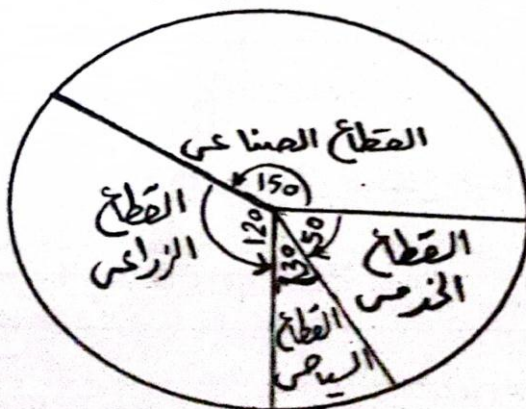 القطاع الصناعى
150
القطاع
الزراعى
120
50
القطاع
الخدمى
30
القطاع
السياحى